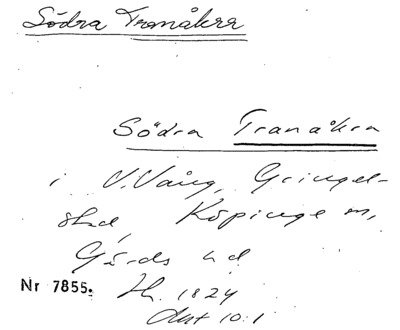 Södra Tranåkra
Södra Tranåkra
i V. Vång, Gringel-
stad, Köpinge sn,
Gärds hd
Nr 7855. Ht. 1824
Akt 10:1